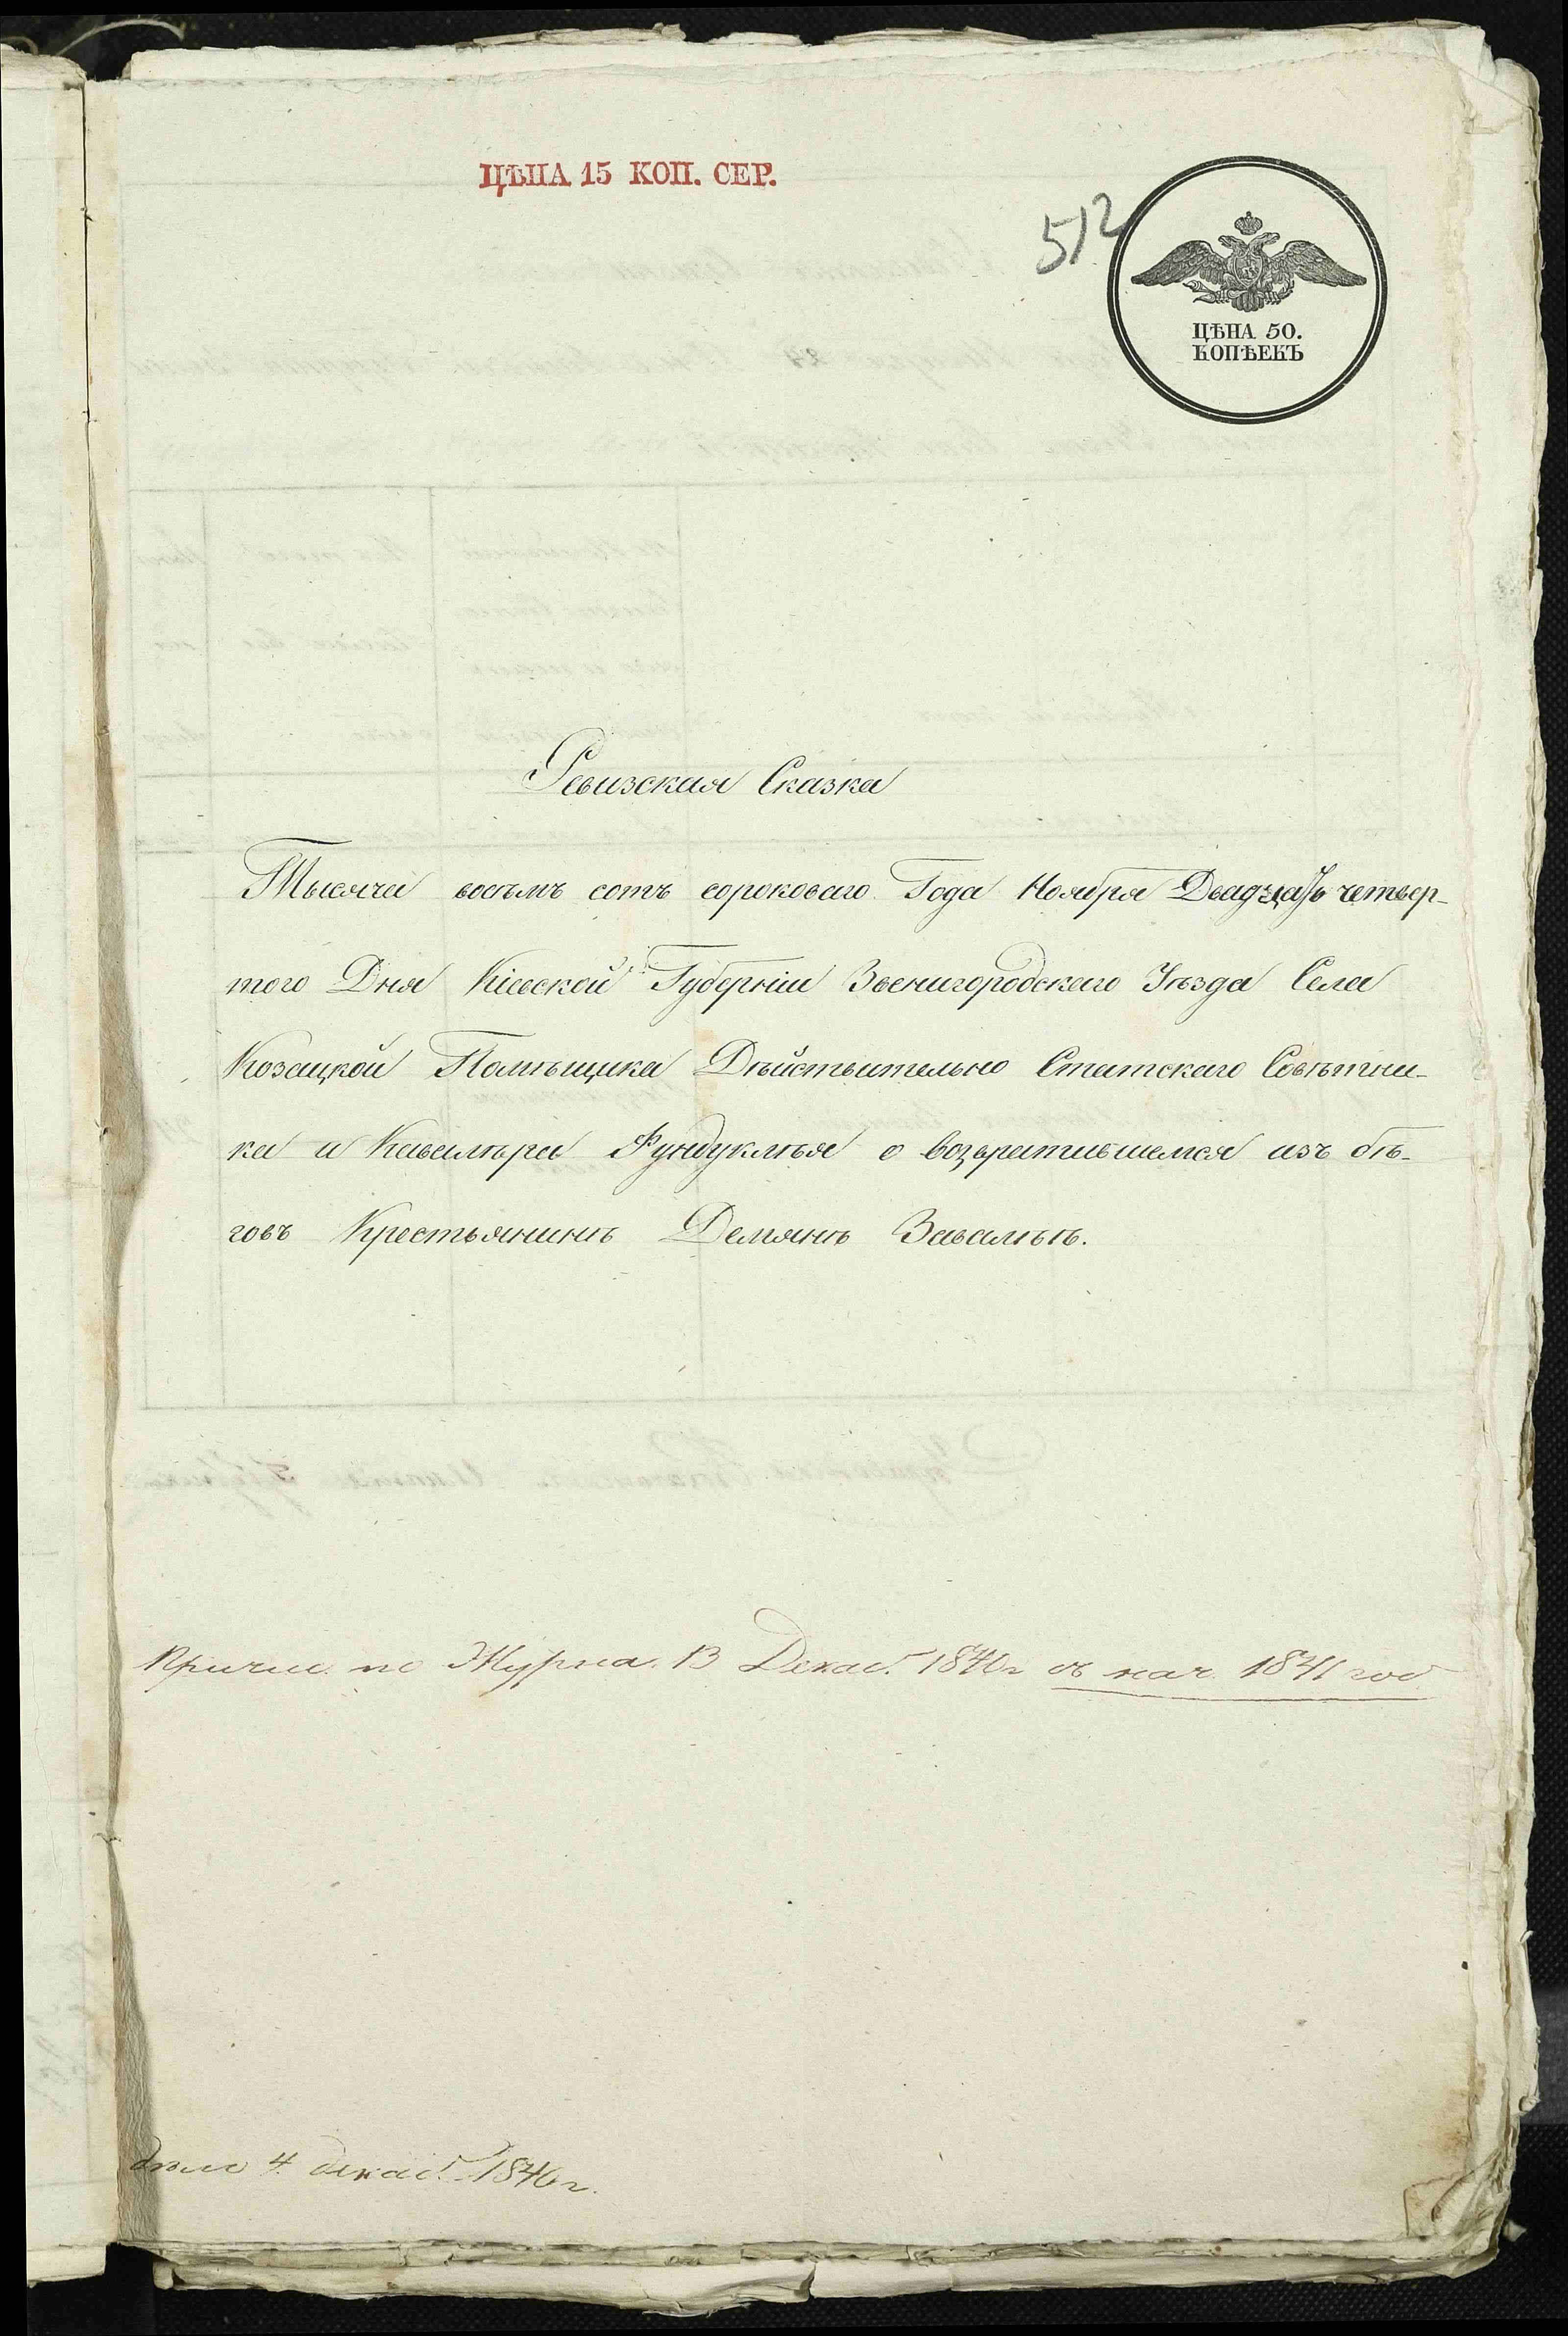 ЦѢНА 15 КОП. СЕР.
512
ЦѢНА 50.
КОПѢЕКЪ
Ревизская Сказка
Тысяча восъмъ сотъ сороковаго Года Ноября Двадцать четвер-
того Дня Кіевской Губерніи Звенигородскаго Уѣзда Села
Козацкой Помѣщика Дѣйствительно Статскаго Совѣтни-
ка и Кавалѣра Фундуклѣя о возвратившемся изъ бѣ-
говъ Крестьянинѣ Демянѣ
Причис. по Журна. 13 Декаб. 1840г съ нач. 1841 год
4 декаб. 1840г.